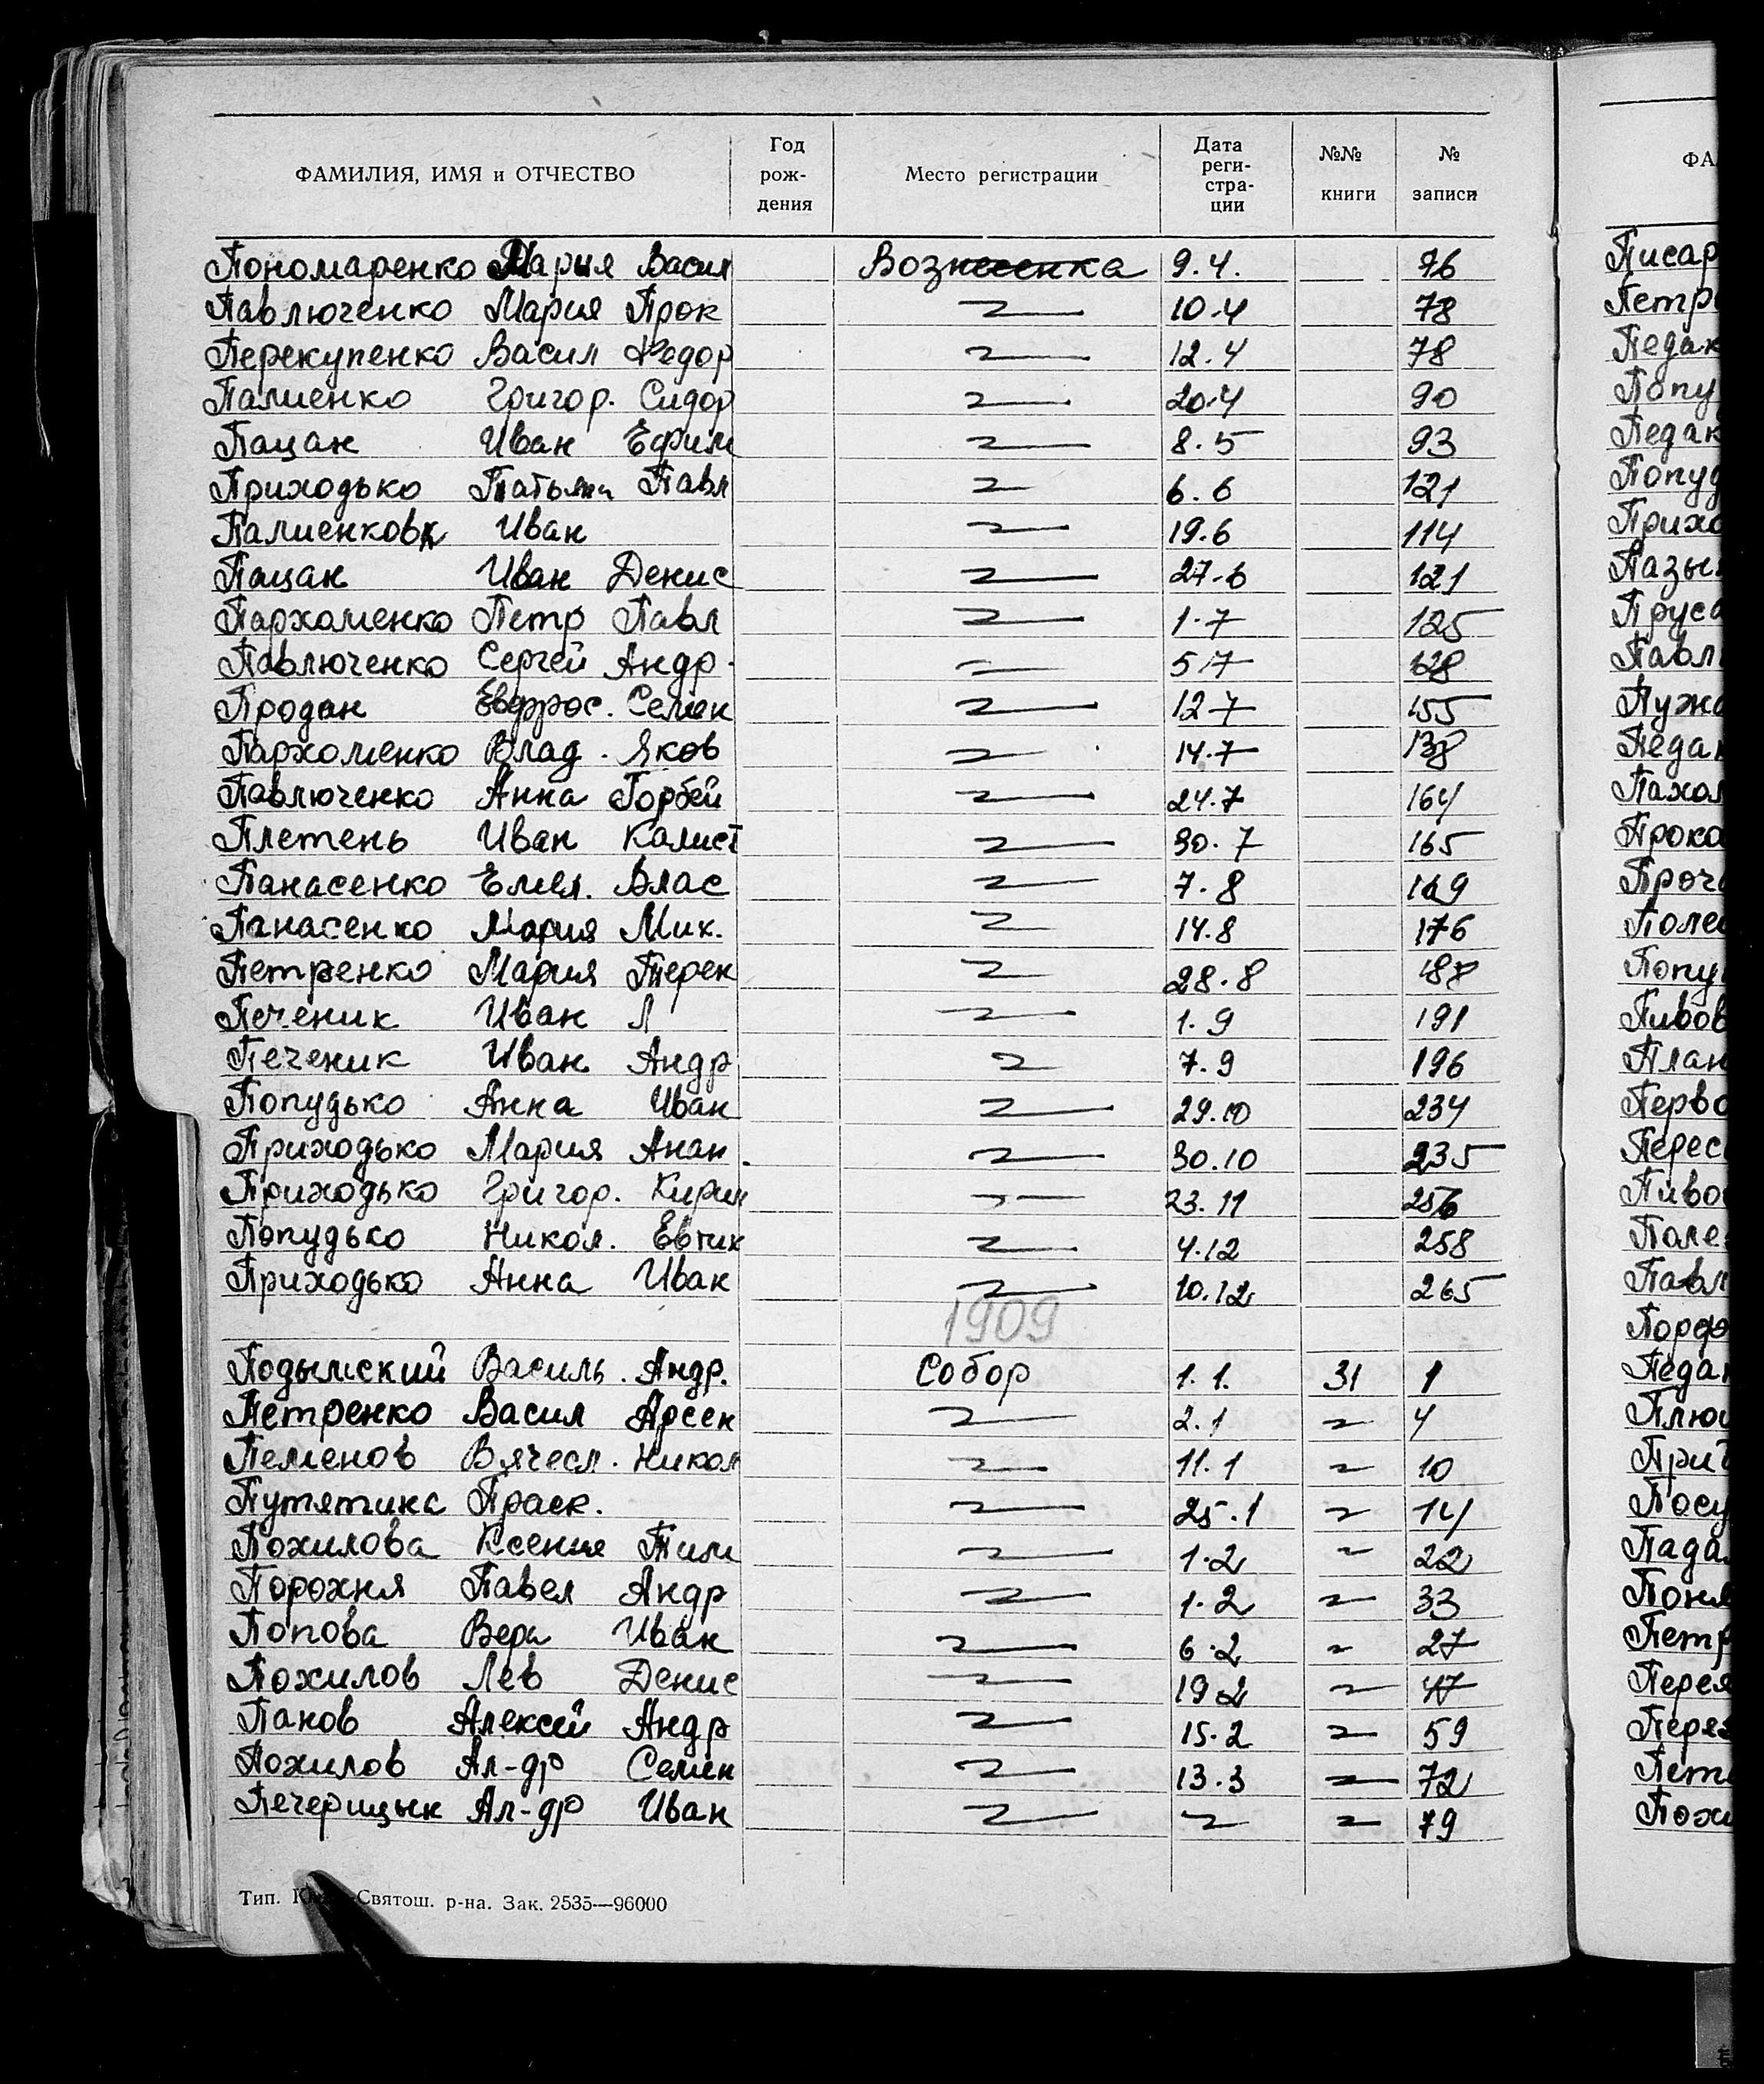 ФАМИЛИЯ, ИМЯ и ОТЧЕСТВО Год рождения Место регистрации Дата регистрации №№ книги № записи
Пономаренко Мария Васил Вознесенка 9.4. 76
Павлюченко Мария Прок 10.4 78
Перекупенко Васил Федор 12.4 78
Палиенко Григор. Сидор 20.4 90
Пацан Иван Ефим 8.5 93
Приходько Татьяна Павл 6.6 121
Палиенков Иван 19.6 114
Пацан Иван Денис 27.6 121
Пархоменко Петр Павл 1.7 125
Павлюченко Сергей Андр. 5.7 128
Продан Евфрос. Семен 12.7 155
Пархоменко Влад. Яков 14.7 138
Павлюченко Анна Горбей 24.7 164
Плетень Иван Калист 30.7 165
Панасенко Емел. Влас 7.8 169
Панасенко Мария Мик. 14.8 176
Петренко Мария Терен 28.8 188
Печеник Иван Л 1.9 191
Печеник Иван Андр 7.9 196
Попудько Анна Иван 29.10 234
Приходько Мария Анан. 30.10 235
Приходько Григор. Кирил 23.11 256
Попудько Никол. Евтих 4.12 258
Приходько Анна Иван 10.12 265
1909
Подымский Василь. Андр. Собор 1.1. 31 1
Петренко Васил Арсен 2.1 4
Пеменов Вячесл. Никол 11.1 10
Путятина Праск. 25.1 14
Похилова Ксения Тим 1.2 22
Порохня Павел Андр 1.2 33
Попова Вера Иван 6.2 27
Похилов Лев Денис 19.2 47
Панов Алексей Андр 15.2 59
Похилов Ал-др Семен 13.3 72
Печерицын Ал-др Иван 79
Тип. Святош. р-на. Зак. 2535—96000
ФА
Писар
Петр
Педак
Попу
Педак
Попуд
Прихо
Пазы
Пруса
Павл
Пужа
Педан
Пахол
Прока
Проч
Поле
Попу
Пивов
План
Перво
Перес
Пиво
Поле
Павл
Порф
Педан
Плю
При
Посу
Пада
Поня
Петр
Перея
Пере
Пет
Похи